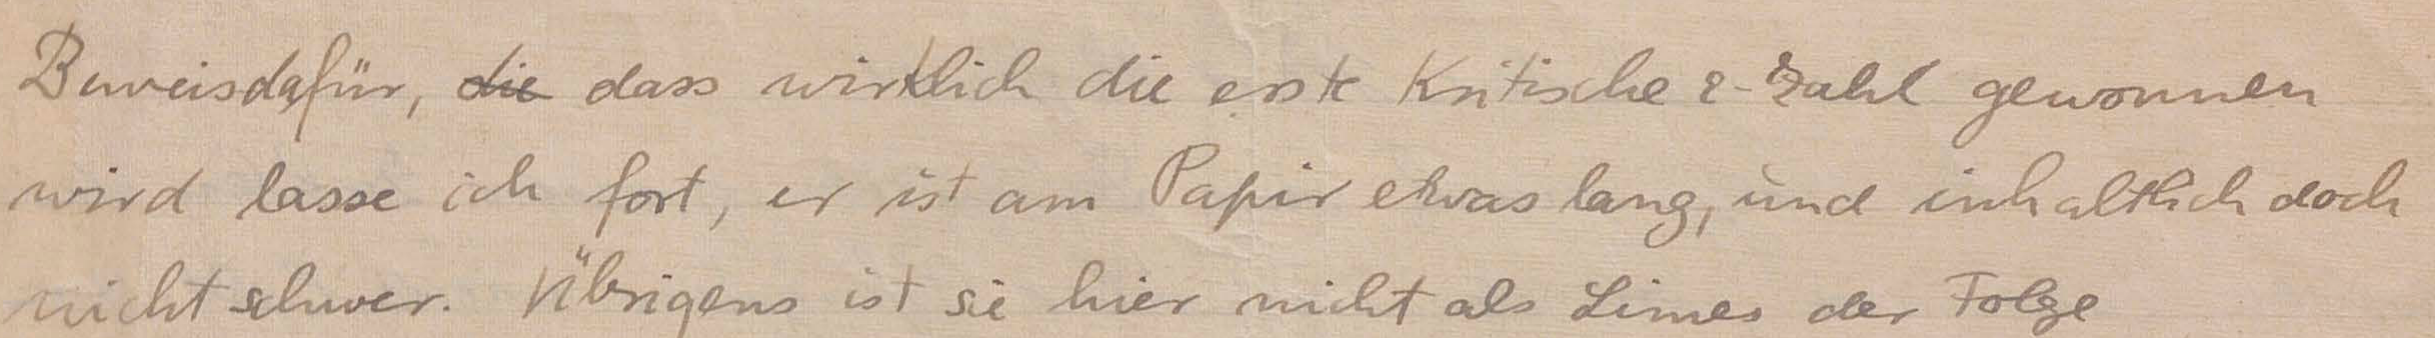 Beweis dafür, die dass wirklich die erste kritische ε-Zahl gewonnen
wird lasse ich fort, er ist am Papir etwas lang, und inhaltlich doch
nicht schwer. Übrigens ist sie hier nicht als Limes der Folge